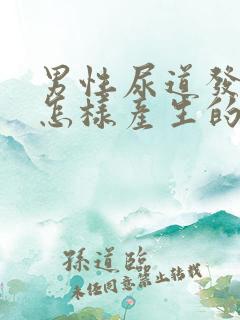 男性尿道發
怎樣產生的
孫道臨
未經同意禁止轉載